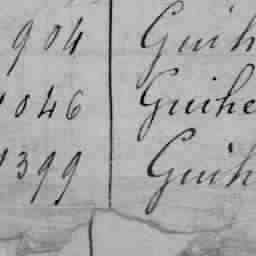 904 Guih
1046 Guihe
1399 Guih